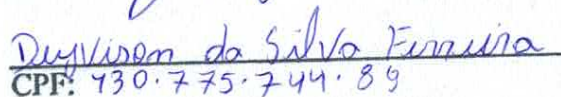 Deyvison da Silva Ferreira
CPF: 430.775.744.89